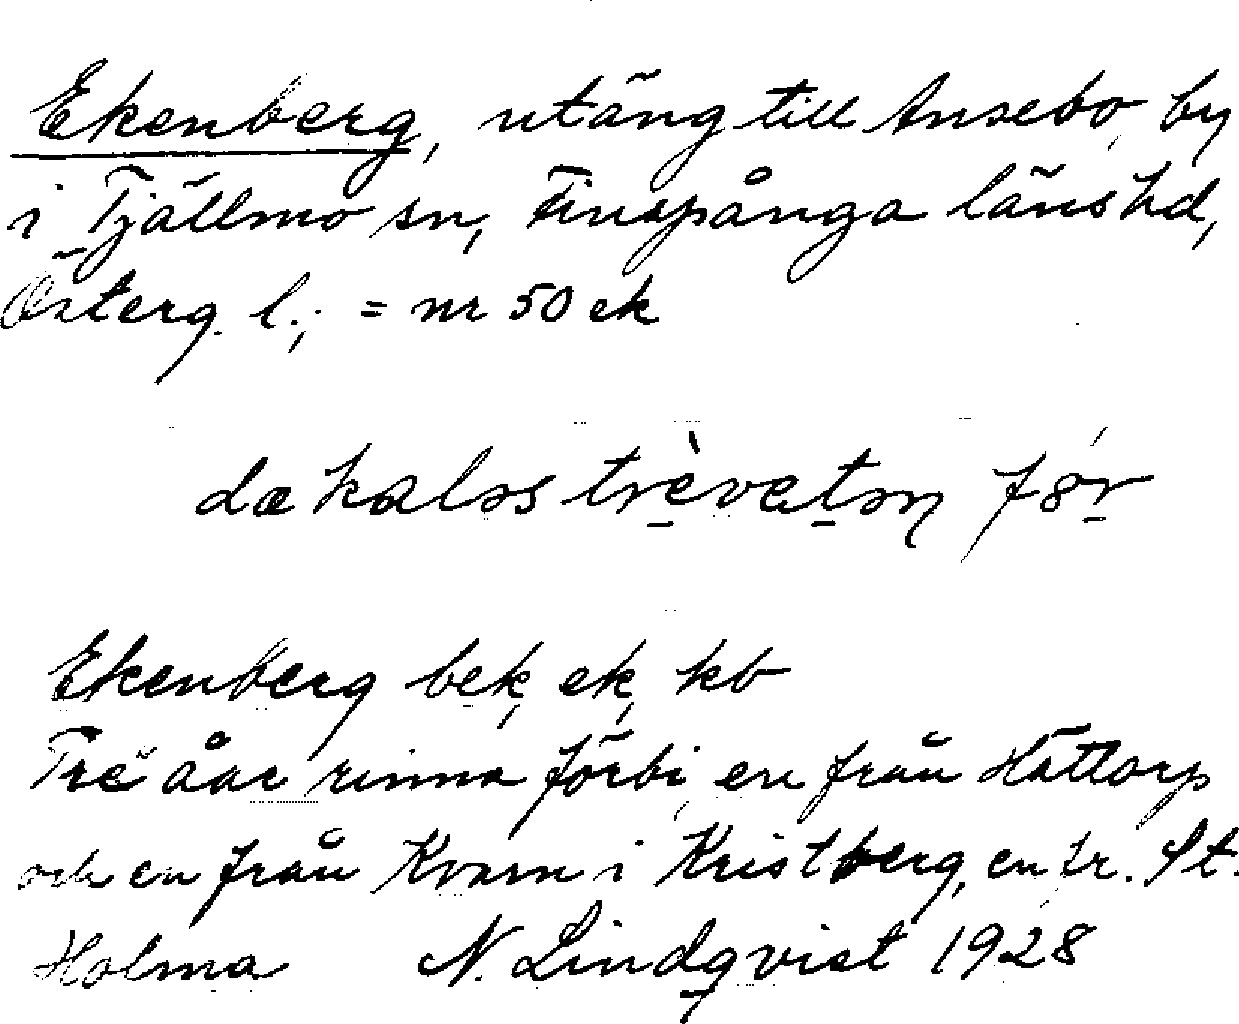 Ekenberg, utäng till Ansebo, by
i Tjällmo sn, Finspånga läns hd,
Österg. l.; = nr 50 ek
dæ kaləs trèvatən før
Ekenberg bek, ek, kb
Tre åar rinna förbi, en från Hättorp
och en från Kvarn i Kristberg, en fr. St.
Holma N. Lindqvist 1928